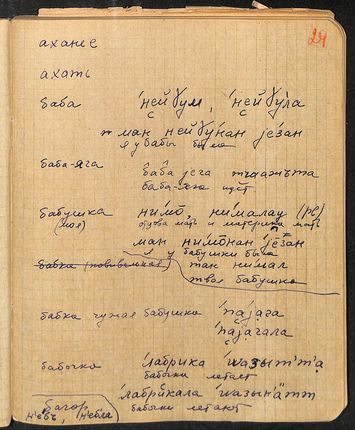 29
аханье
ахать
баба 'нейғум, 'нейғула
ман нейғунанjезан
я у бабы была
баба-яга баба jега
баба-яга идёт
бабушка нимо, нималау (pl)
(моя) отцова мать и материна мать
ман нимонан jезан
я у бабушки была
бабка (повивальная) тан нимал
твоя бабушка
бабка чужая бабушка 'паjага
'паjагала
бабочка 'лабрика
бабочка летает
'лабрикала
бабочки летают
багор